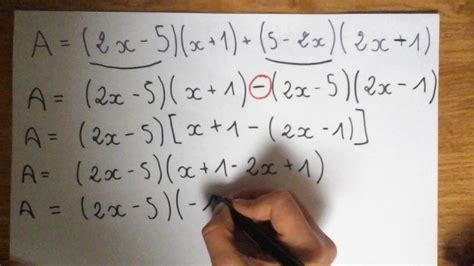 A = (2x - 5)(x + 1) + (5 - 2x)(2x + 1)
A = (2x - 5)(x + 1) - (2x - 5)(2x - 1)
A = (2x - 5)[x + 1 - (2x - 1)]
A = (2x - 5)(x + 1 - 2x + 1)
A = (2x - 5)(-